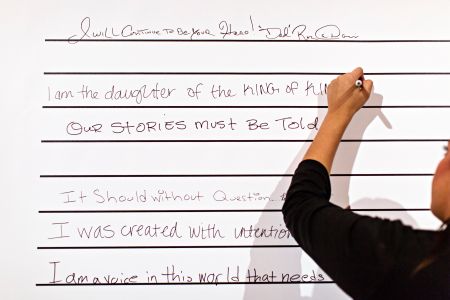 I will Continue To Be Your Hero! "Dad"
I am the daughter of the KING of
Our STORIES must Be Told
It Should without Question
I was created with intention
I am a voice in this world that needs